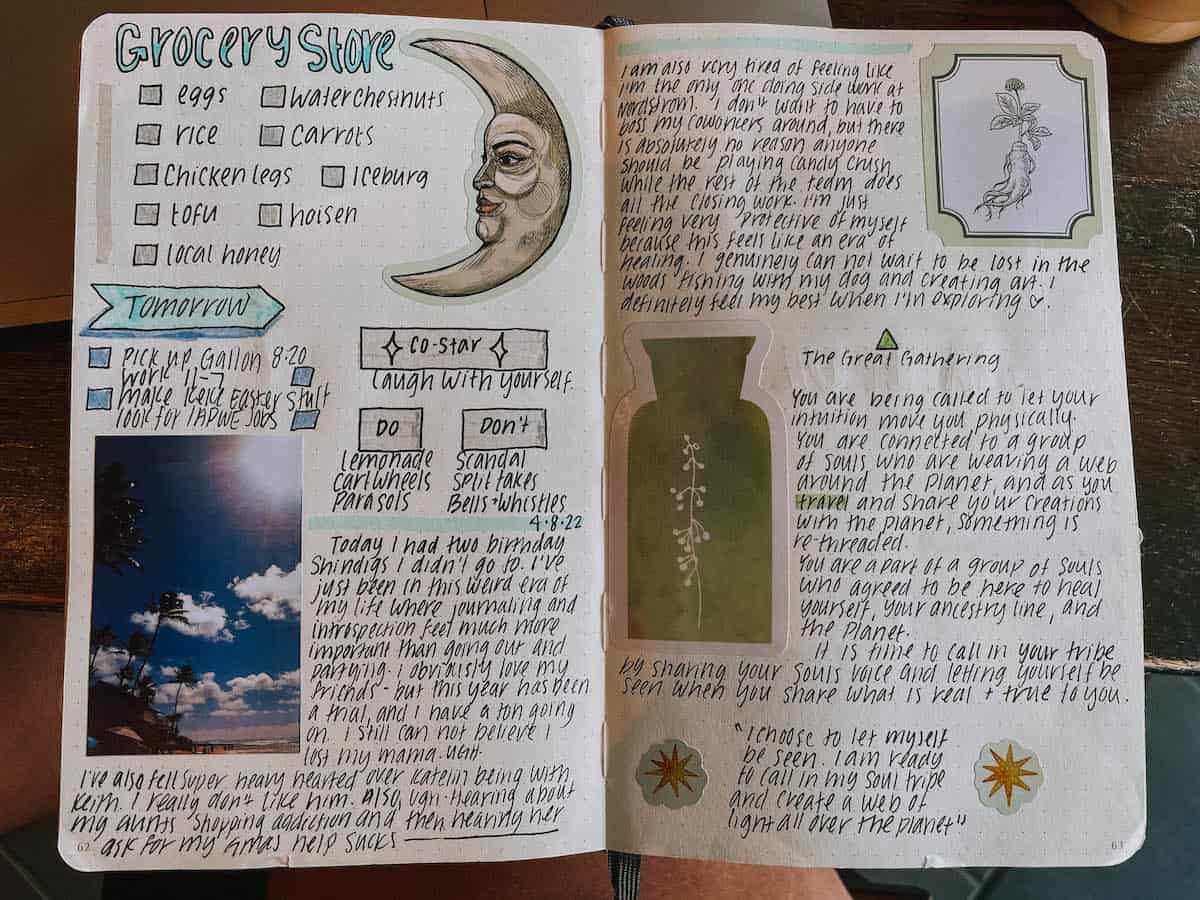 Grocery Store
eggs
waterchestnuts
rice
carrots
chicken legs
Iceburg
tofu
hoisen
local honey
Tomorrow
pick up Gallon 8:20
work 11-7
make Keiki Easter Stuff
look for Jobs
CO-STAR
Laugh with yourself.
DO
Lemonade
cartwheels
parasols
Don't
Scandal
Split takes
Bells + Whistles
4.8.22
Today I had two birthday
Shindigs I didn't go to. I've
just been in this weird era of
my life where journaling and
introspection feel much more
important than going out and
partying. I obviously love my
friends - but this year has been
a trial, and I have a ton going
on. I still can not believe I
lost my mama. UGH.
I've also felt super heavy hearted over Katelin being with
Keith. I really don't like him. Also, ugh-Hearing about
my aunts shopping addiction and then hearing her
ask for my Gmas help sucks
62
I am also very tired of feeling like
I'm the only one doing side work at
nordstrom. I don't want to have to
boss my coworkers around, but there
is absolutely no reason anyone
should be playing candy crush
while the rest of the team does
all the closing work. I'm just
feeling very protective of myself
because this feels like an era of
healing. I genuinely can not wait to be lost in the
woods fishing with my dog and creating art. I
definitely feel my best when I'm exploring ♡.
The Great Gathering
You are being called to let your
intuition move you physically.
You are connected to a group
of souls who are weaving a web
around the planet, and as you
travel and share your creations
with the planet, something is
re-threaded.
You are a part of a group of souls
who agreed to be here to heal
yourself, your ancestry line, and
the planet.
It is time to call in your tribe
by sharing your souls voice and letting yourself be
seen when you share what is real + true to you.
"I choose to let myself
be seen. I am ready
to call in my soul tribe
and create a web of
light all over the planet"
63